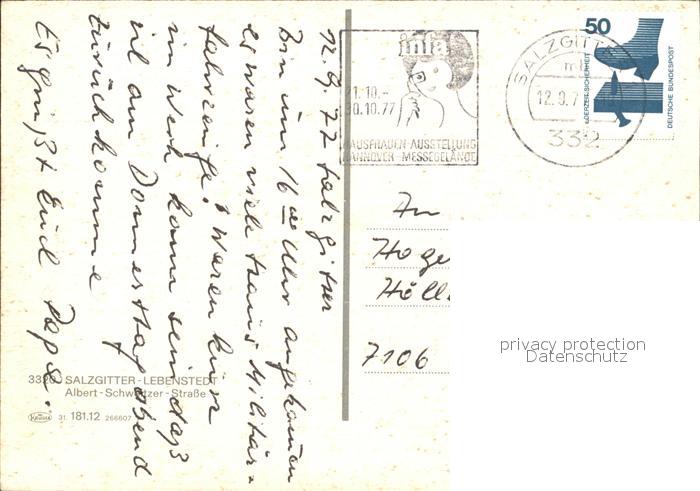 12.9.77 Salzgitter
Bin um 16 00 Uhr angekommen
es waren viele trans Militär=
fahrzeuge. Waren hier
im Werk kann sein daß
ich am Donnerstag abend
zurück komme
Es grüßt Euch Papa.
3320 SALZGITTER-LEBENSTEDT
Albert-Schweitzer-Straße
Krüger 31. 181.12 266607
infa
21.10.-
30.10.77
HAUSFRAUEN-AUSSTELLUNG
HANNOVER-MESSEGELÄNDE
SALZGITTER
12.9.7
332
50
JEDERZEIT SICHERHEIT
DEUTSCHE BUNDESPOST
An
Hage
Höll
7106
privacy protection
Datenschutz